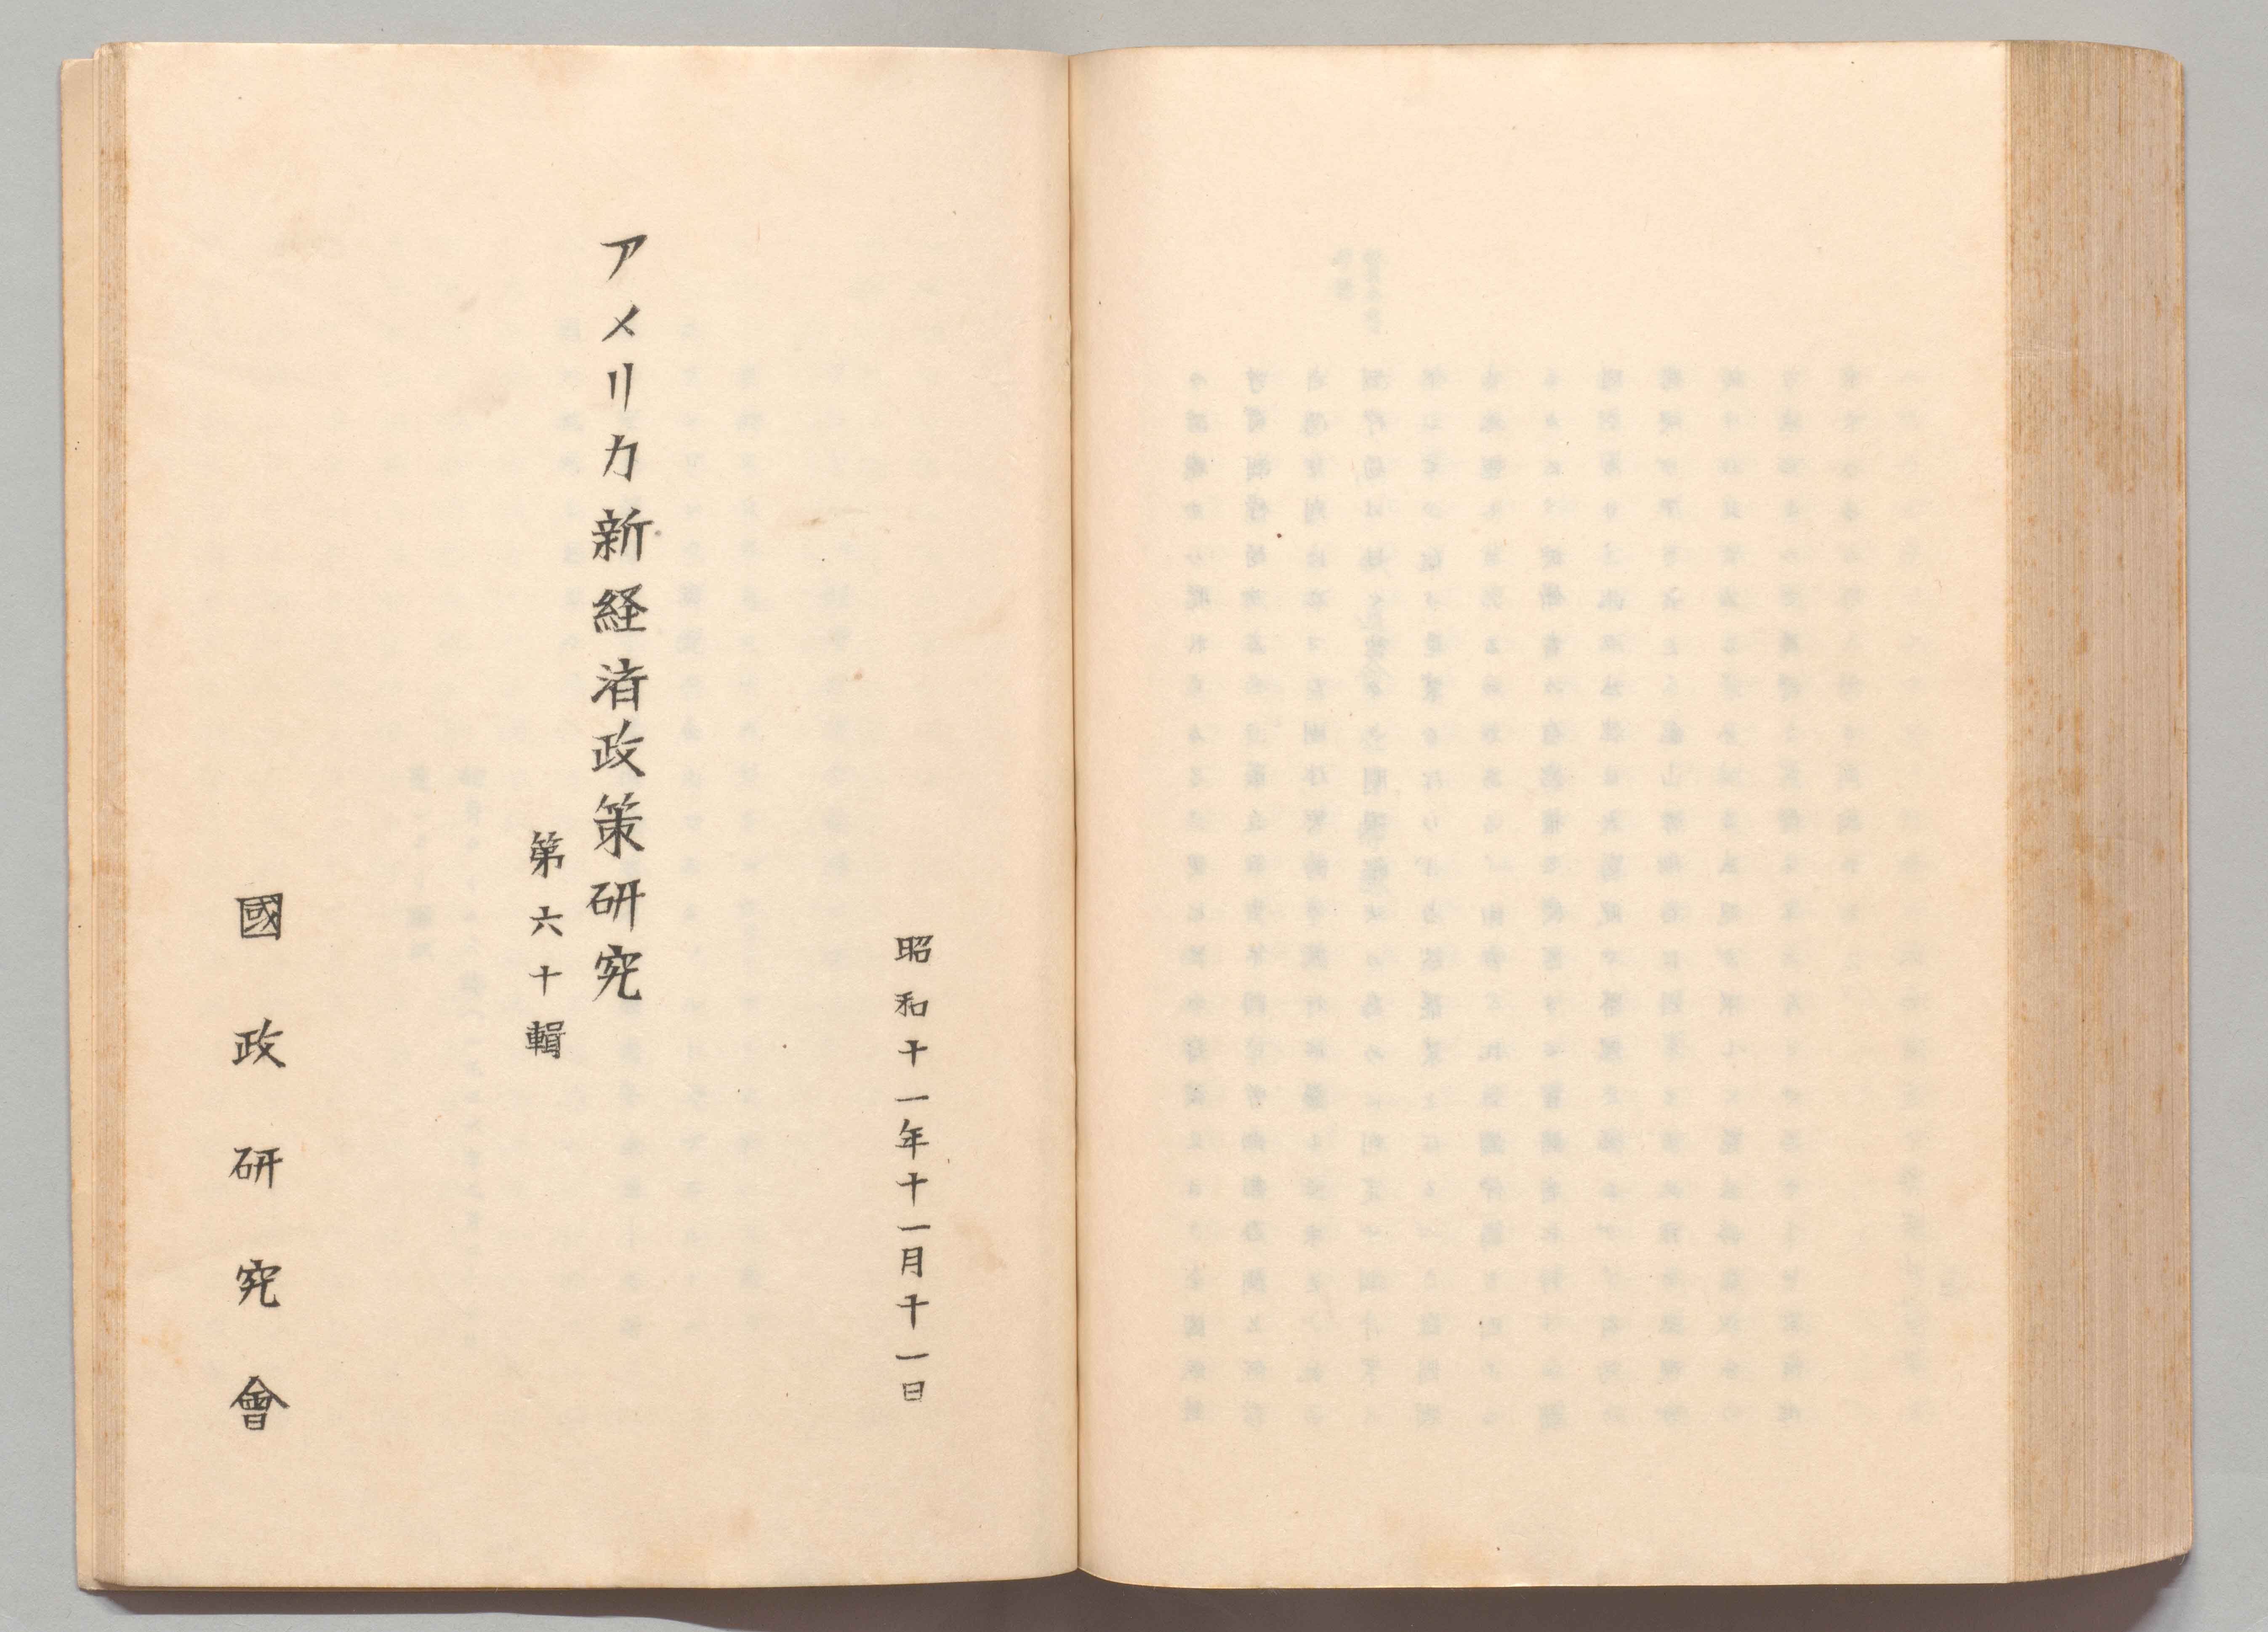 昭和十一年十一月十一日
アメリカ新経済政策研究
第六十輯
國政研究會